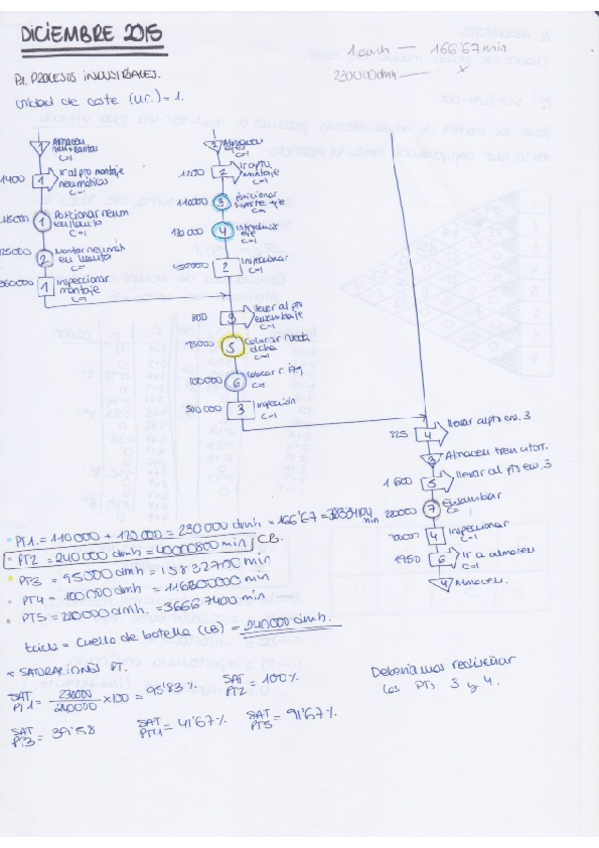 DICIEMBRE 2015
1 cmh — 166'67 min
230000 dmh — x
P1. PROCESOS INDUSTRIALES.
Unidad de coste (u.c.) = 1.
1 Almacén neumáticos c=1
1400 1 Ir al pto montaje neumáticos c=1
1 Posicionar neum en llanta c=1
2 Montar neumát en llanta c=1
1 Inspeccionar montaje c=1
2 Almacén ejes c=1
2 Ir a pto. montaje c=1
110000 3 Posicionar soporte eje
120000 4 Introducir eje c=1
2 Inspeccionar c=1
800 3 llevar al pto ensamblaje c=1
95000 5 Colocar rueda dcha c=1
100000 6 Colocar r. izq c=1
500000 3 Inspección c=1
225 4 llevar al pto en. 3
3 Almacén tren
1600 5 llevar al pto en. 3
7 Ensamblar c=1
4 Inspeccionar c=1
1950 6 Ir a almacén c=1
4 Almacén.
• PT1. = 110000 + 120000 = 230000 dmh × 166'67 = 38334100 min
• PT2 = 240000 dmh = 40000800 min CB.
• PT3 = 95000 dmh = 15832700 min
• PT4 = 100000 dmh = 116800000 min
• PT5 = 220000 dmh. = 36667400 min
tciclo = Cuello de botella (CB) = 240000 dmh.
* SATURACIONES PT.
SAT PT1 = 230000/240000 × 100 = 95'83 % SAT PT2 = 100 %
SAT PT3 = 39'58 SAT PT4 = 41'67 % SAT PT5 = 91'67 %
Deberíamos rediseñar
los PTs 3 y 4.